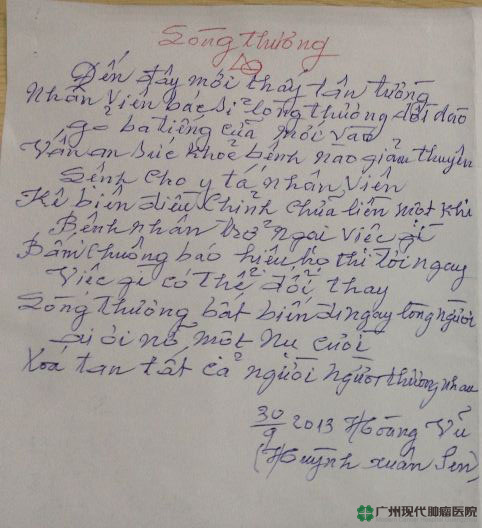 Sóng thương
Đến đây mới thấy tận tường
Nhân viên bác sĩ lòng thương dồi dào
ba tiếng của mới vào
Vấn an sức khoẻ bệnh nào giảm thuyên
Sênh cho y tá nhân viên
Kê biên điều chỉnh chữa liền một khi
Bệnh nhân trở ngại việc gì
Bấm chuông báo hiệu họ thì tới ngay
Việc gì có thể đổi thay
Sóng thương bất biến ngay lòng người
nở một nụ cười
Xoá tan tất cả người người thương nhau
30/9 2013 Hoàng Vũ
(Huỳnh Xuân Sen)
广州现代肿瘤医院